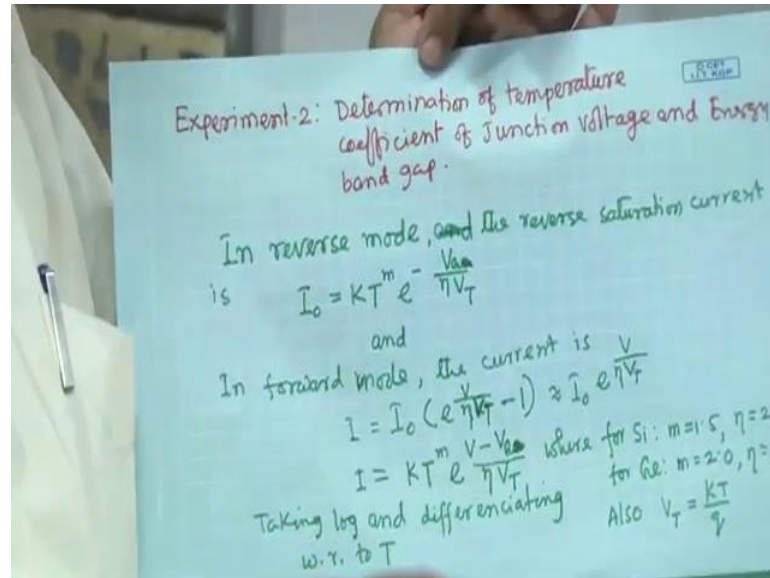 Experiment-2: Determination of temperature
coefficient of Junction Voltage and Energy
band gap.
In reverse mode, the reverse saturation current
is I₀ = KT^m e^(-V/ηV_T)
and
In forward mode, the current is
I = I₀ (e^(V/ηV_T) -1) ≈ I₀ e^(V/ηV_T)
I = KT^m e^(V-V/ηV_T) where for Si: m=1.5, η=2
for Ge: m=2.0, η=
Taking log and differenciating Also V_T = KT/q
w.r. to T